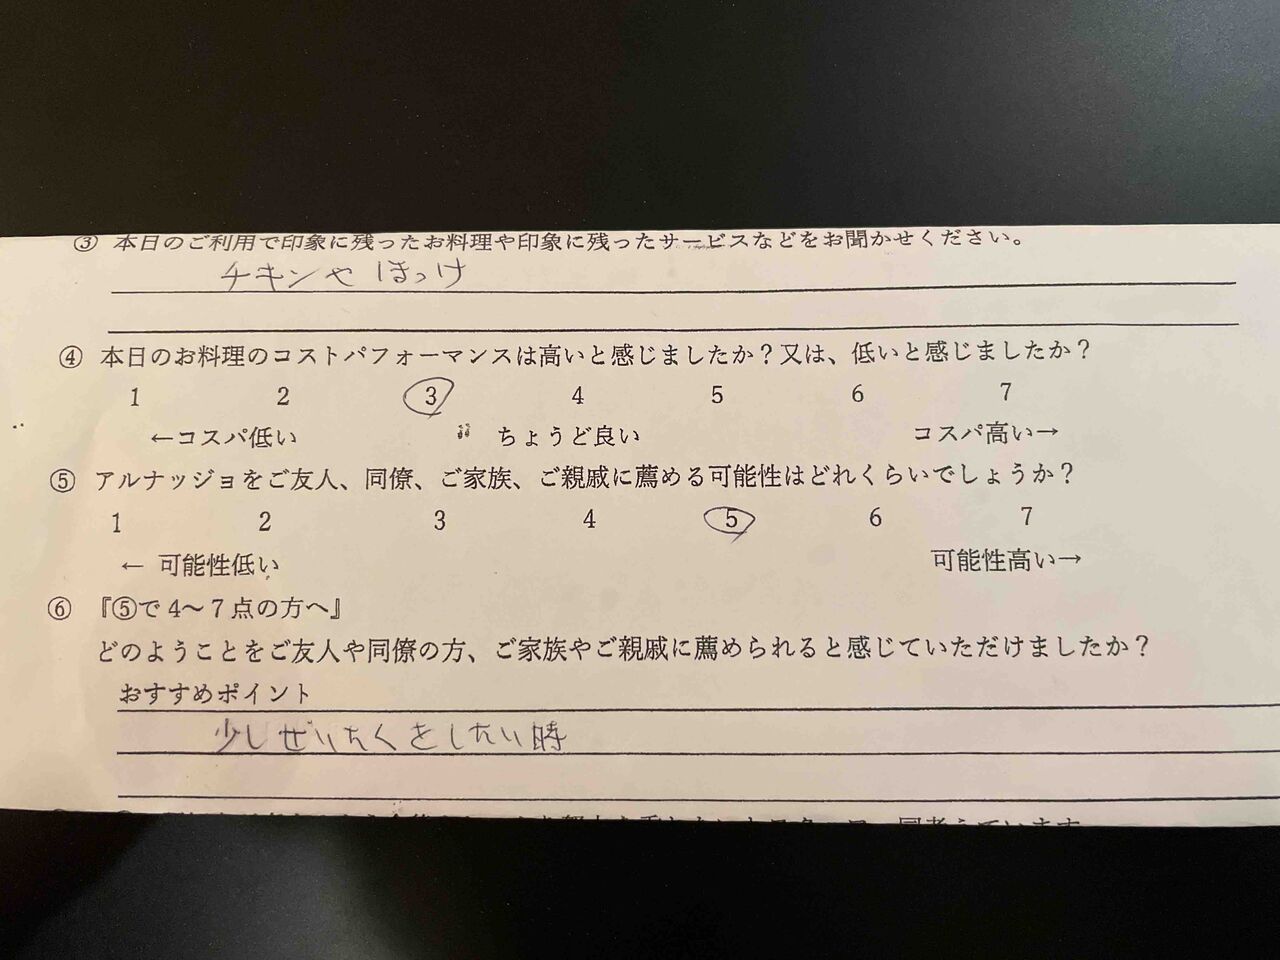 ③ 本日のご利用で印象に残ったお料理や印象に残ったサービスなどをお聞かせください。
チキンや ほっけ
④ 本日のお料理のコストパフォーマンスは高いと感じましたか？又は、低いと感じましたか？
1 2 3 4 5 6 7
←コスパ低い ちょうど良い コスパ高い→
⑤ アルナッジョをご友人、同僚、ご家族、ご親戚に薦める可能性はどれくらいでしょうか？
1 2 3 4 5 6 7
← 可能性低い 可能性高い→
⑥ 『⑤で4～7点の方へ』
どのようことをご友人や同僚の方、ご家族やご親戚に薦められると感じていただけましたか？
おすすめポイント
少しぜいたくをしたい時